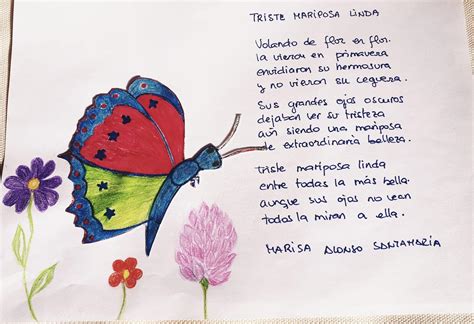 TRISTE MARIPOSA LINDA
Volando de flor en flor.
la vieron en primavera
envidiaron su hermosura
y no vieron su ceguera.
Sus grandes ojos oscuros
dejaban ver su tristeza
aún siendo una mariposa
de extraordinaria belleza.
Triste mariposa linda
entre todas la más bella.
aunque sus ojos no vean
todas la miran a ella.
MARISA ALONSO SANTAMARÍA